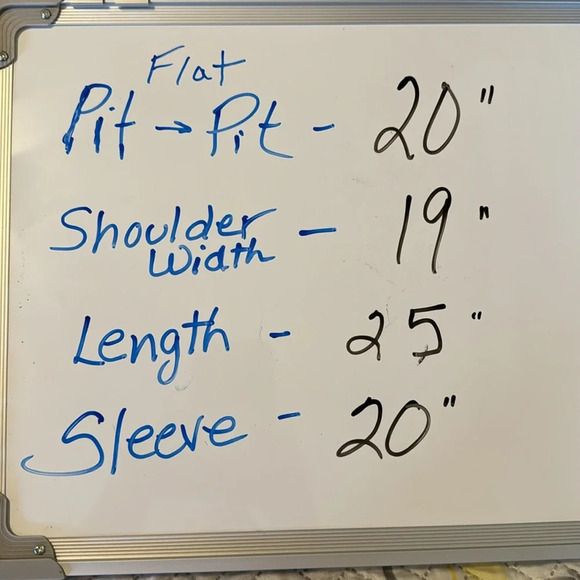 Flat
Pit → Pit - 20"
Shoulder
Width - 19"
Length - 25"
Sleeve - 20"